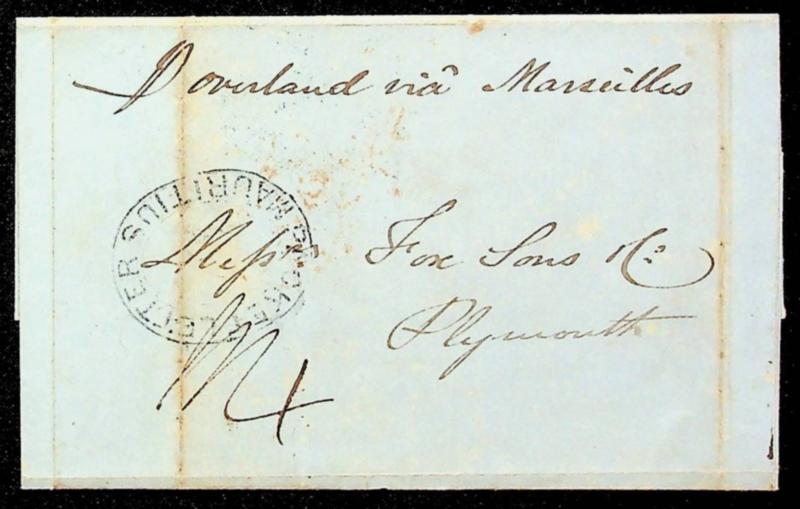 P overland viâ Marseilles
PACKET LETTER MAURITIUS
Messrs Fox Sons & Co
Plymouth